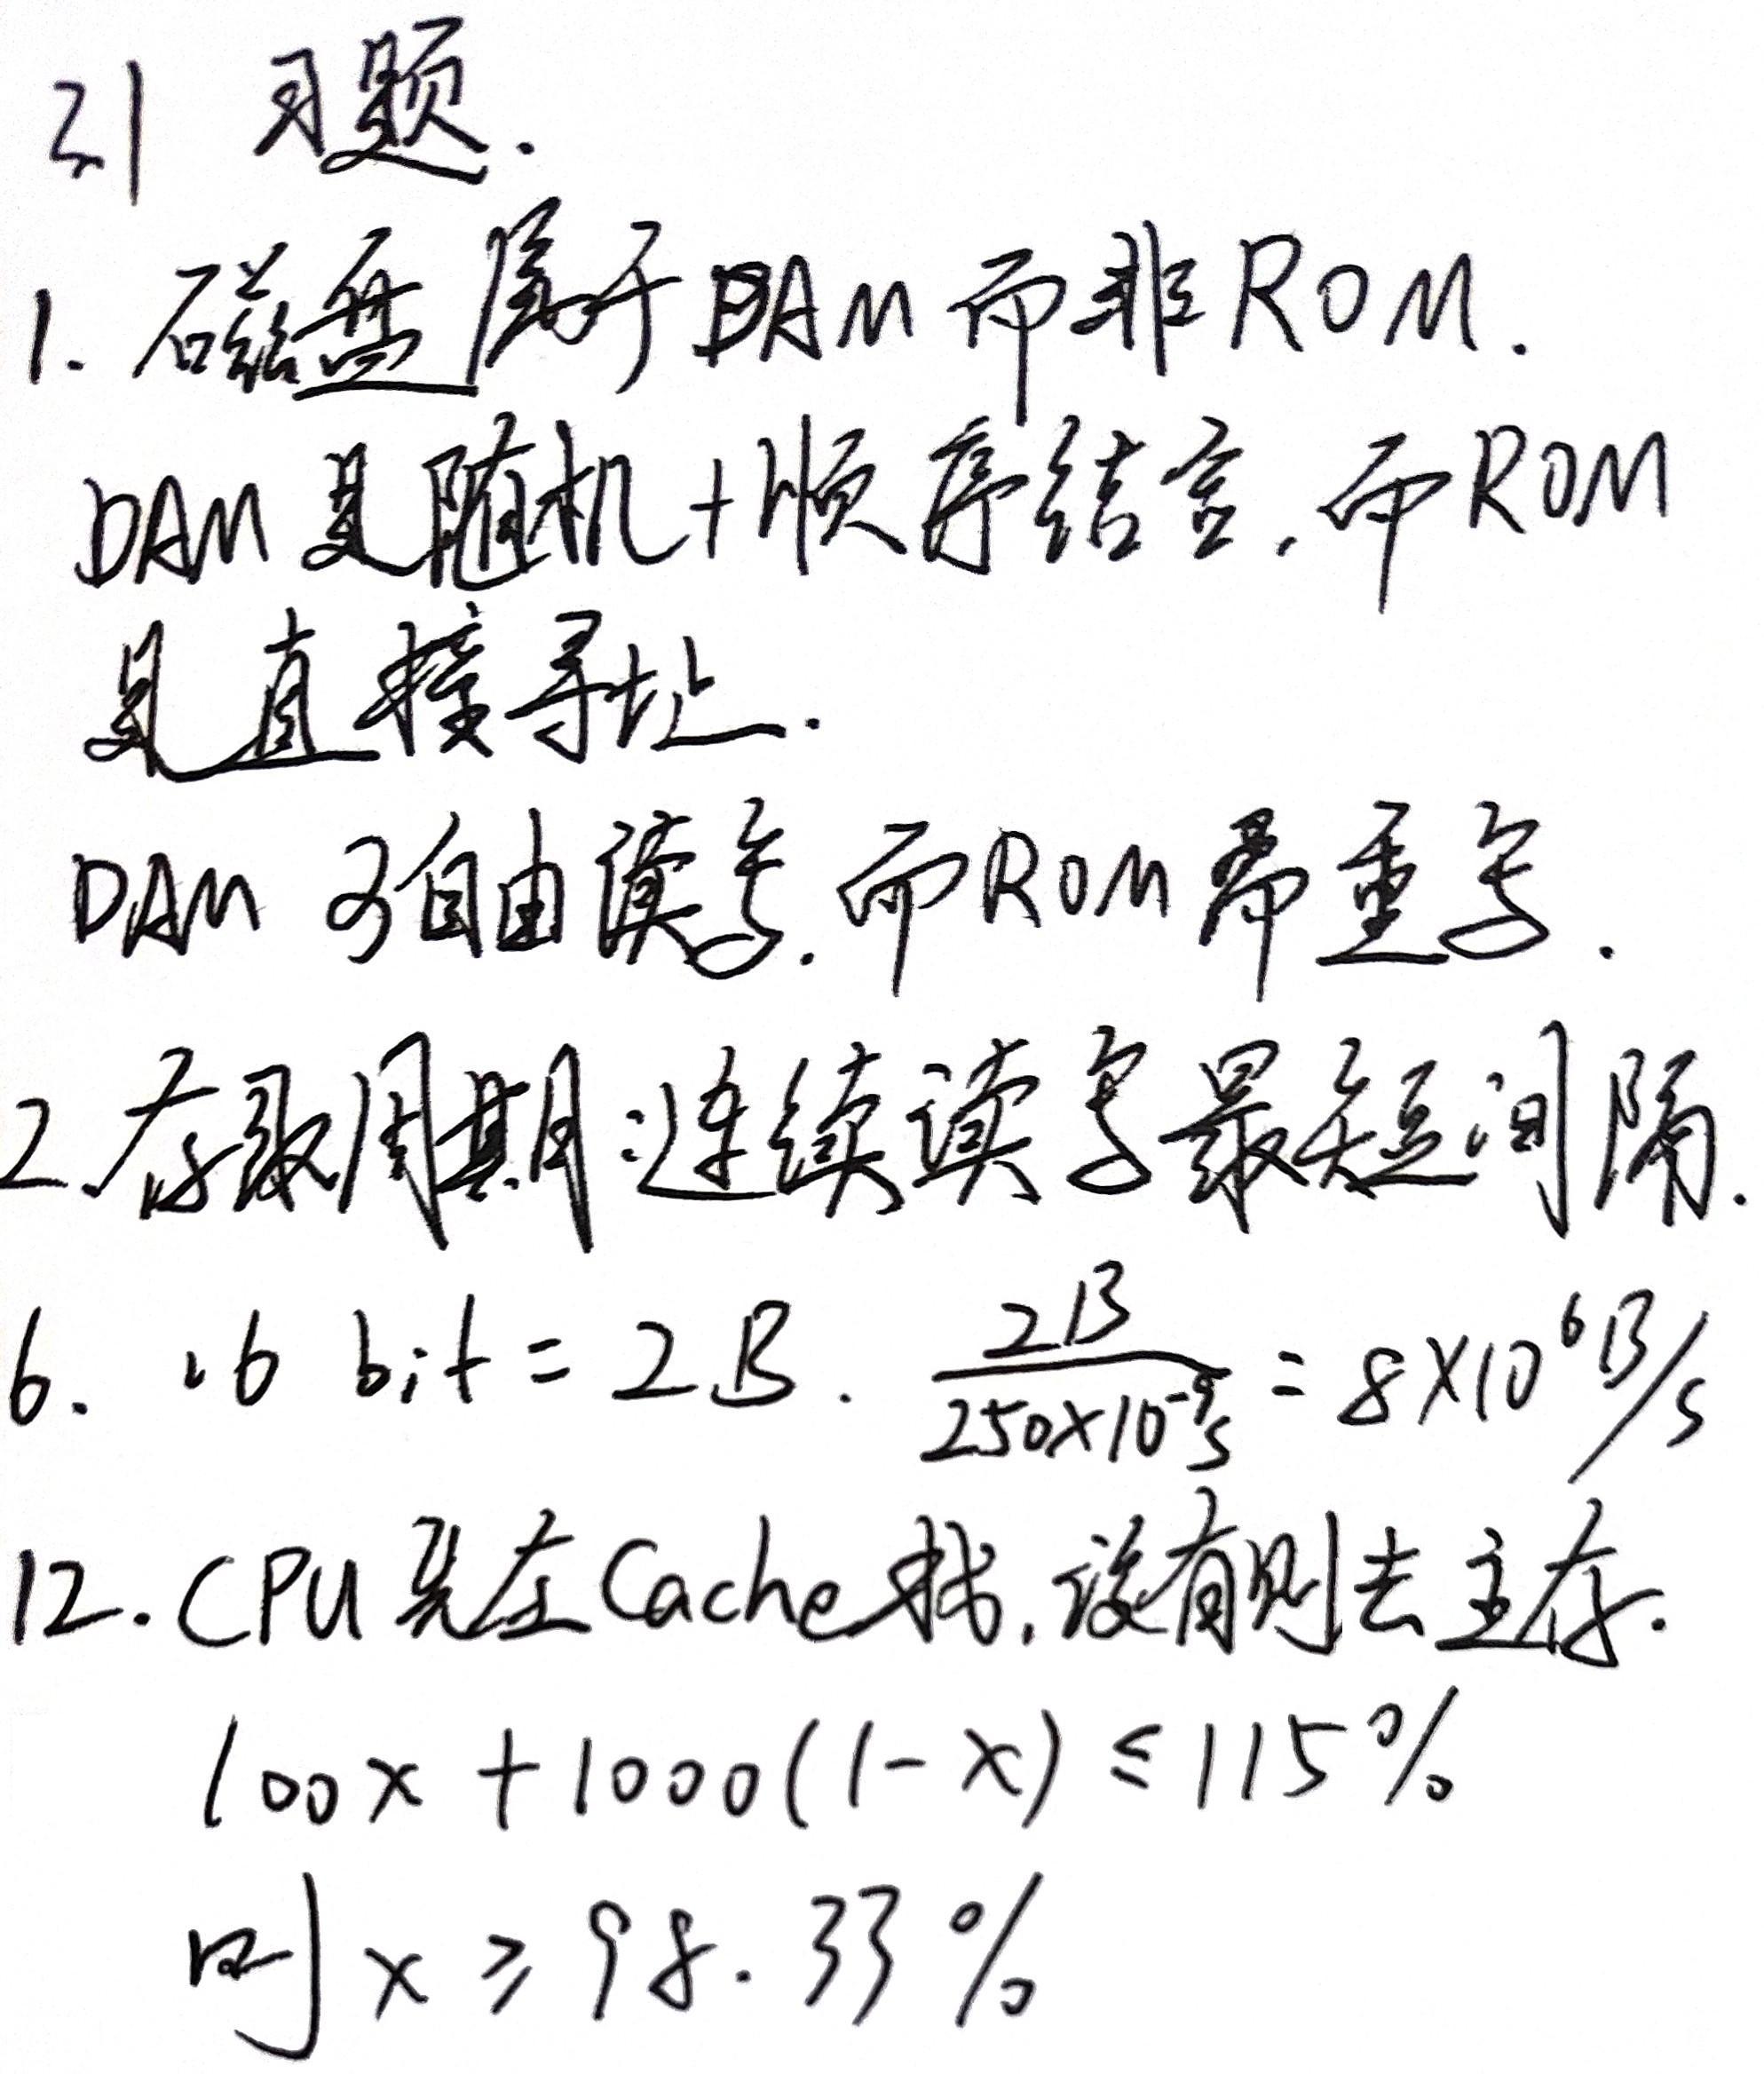 3.1 习题.
1. 磁盘属于DAM而非ROM.
DAM是随机+顺序结合,而ROM
是直接寻址.
DAM可自由读写.而ROM需重写.
2.存取周期:连续读写最短间隔.
6. 16 bit = 2B. 2B/(250×10⁻⁹s) = 8×10⁶B/s
12. CPU先在Cache找,没有则去主存.
100x + 1000(1-x) ≤ 115%
则 x ≥ 98.33%